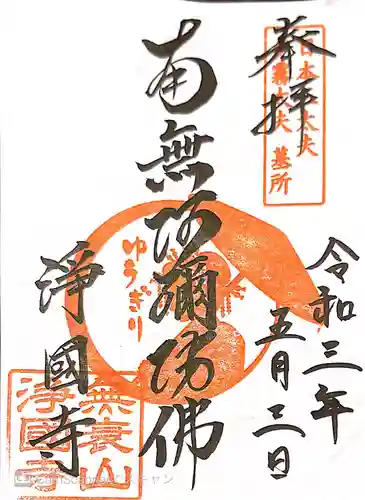 奉拝
日本三太夫
霧太夫 墓所
令和三年
五月三日
南無阿彌陀佛
ゆうぎり
淨國寺
無衰山
淨國寺